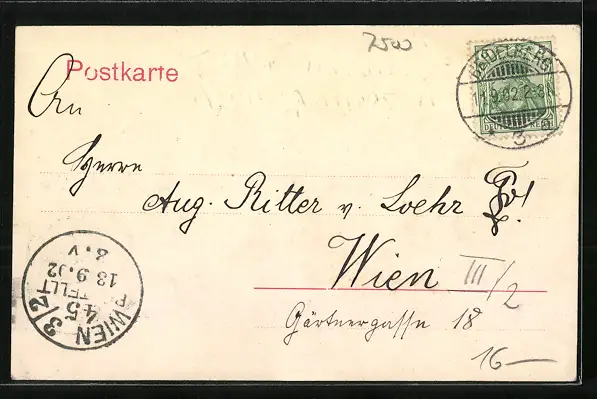 2500
Postkarte
HEIDELBERG
.9.02.2-3
DEUTSCHES REICH
* 3 a
An
Herrn
Aug. Ritter v. Loehr
Wien III/2
Gärtnergasse 18
16—
WIEN 3/2
45
BESTELLT
18.9.02
8.V